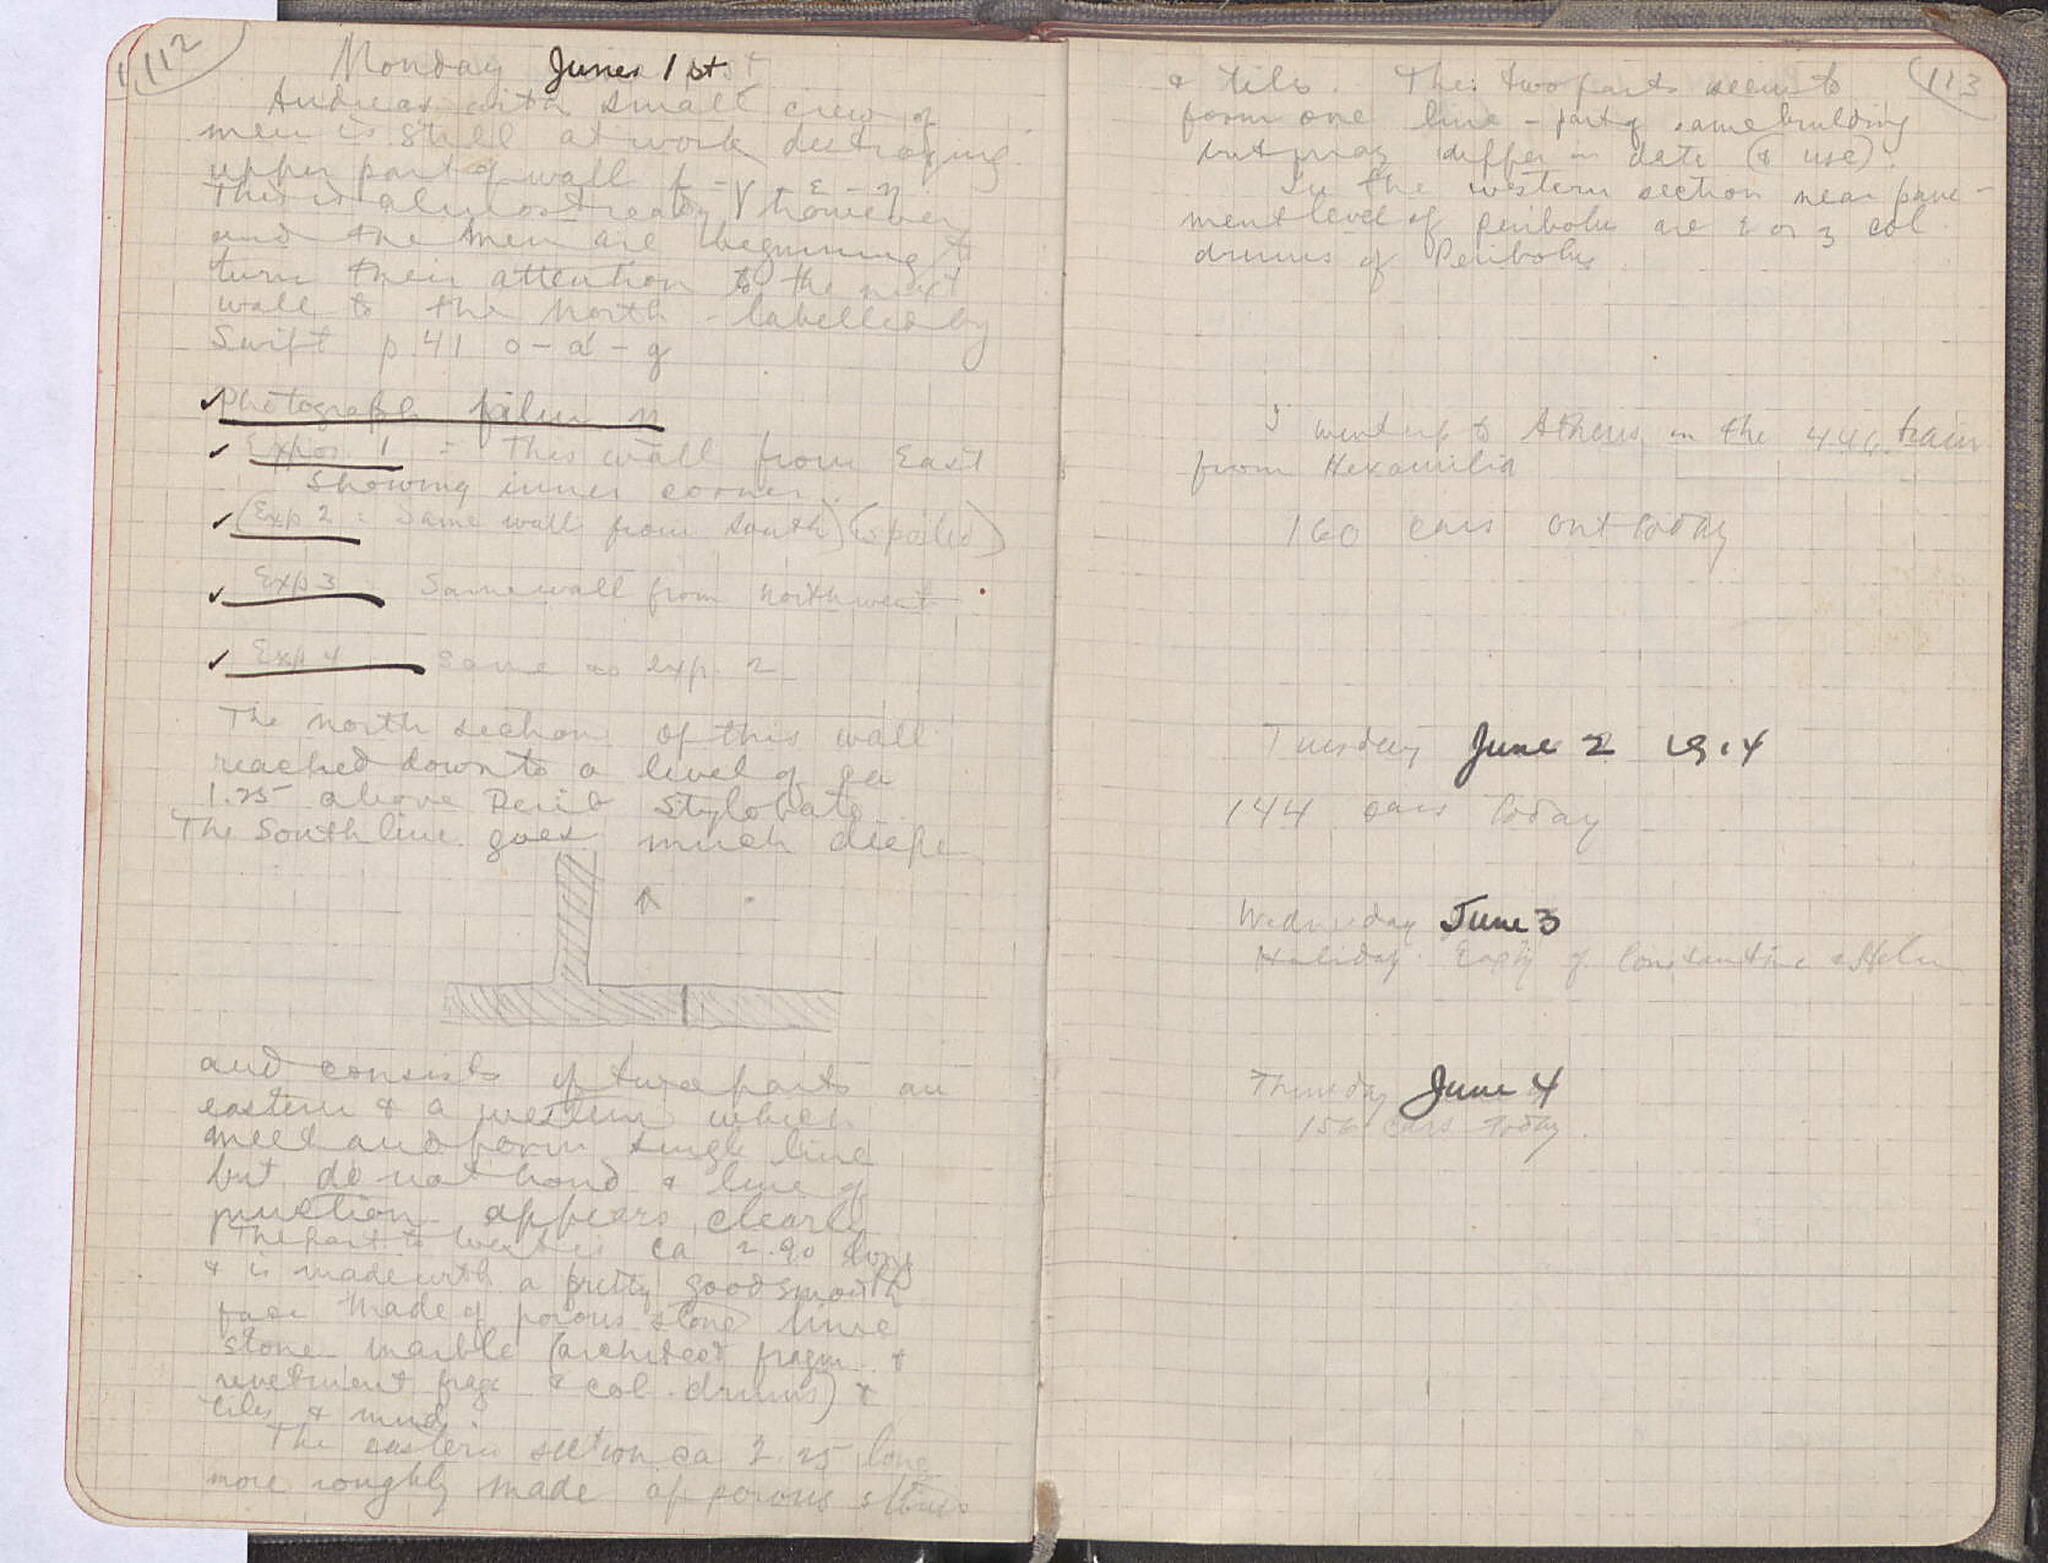 112
Monday June 1st
Andreas with small crew of
men is still at work destroying
upper part of wall
This is almost ready however
and the men are beginning to
turn their attention to the next
wall to the North - labelled by
Swift p. 41 o - a' - g
Photograph film n
Expos 1 = This wall from East
showing inner corner.
(Exp 2 = Same wall from South) (spoiled)
Exp 3 Same wall from northwest
Exp 4 Same as exp. 2
The north section of this wall
reached down to a level of ca
1.25 above Perib Stylobate
The South line goes much deeper
and consists of two parts an
eastern & a western which
meet and form single line
but do not bond & line of
junction appears clearly
The part to West is ca 2.90 long
& is made with a pretty good smooth
face made of porous stone lime
stone marble (architect fragm &
revetment frags & col. drums) &
tiles & mud.
The eastern section ca 3.25 long
more roughly made of porous stones
113
& tiles. The two parts seem to
form one line - part of same building
but may differ in date (& use).
In the western section near pave-
ment level of peribolus are 2 or 3 col
drums of Peribolus
I went up to Athens on the 4.46 train
from Hexamilia
160 cars out today
Tuesday June 2 1914
144 cars today
Wednesday June 3
Holiday. of Constantine & Helen
Thursday June 4
156 cars today.